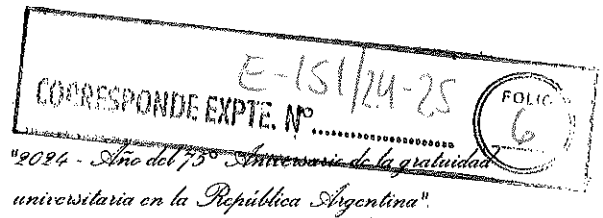 E-151/24-25
CORRESPONDE EXPTE. Nº..................
FOLIO
6
"2024 - Año del 75º Aniversario de la gratuidad
universitaria en la República Argentina".